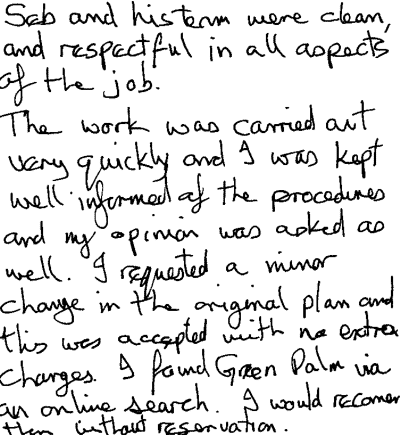 Seb and his team were clean,
and respectful in all aspects
of the job.
The work was carried out
very quickly and I was kept
well informed of the procedures
and my opinion was asked as
well. I requested a minor
change in the original plan and
this was accepted with no extra
charges. I found Green Palm via
an online search. I would recomen
them without reservation.